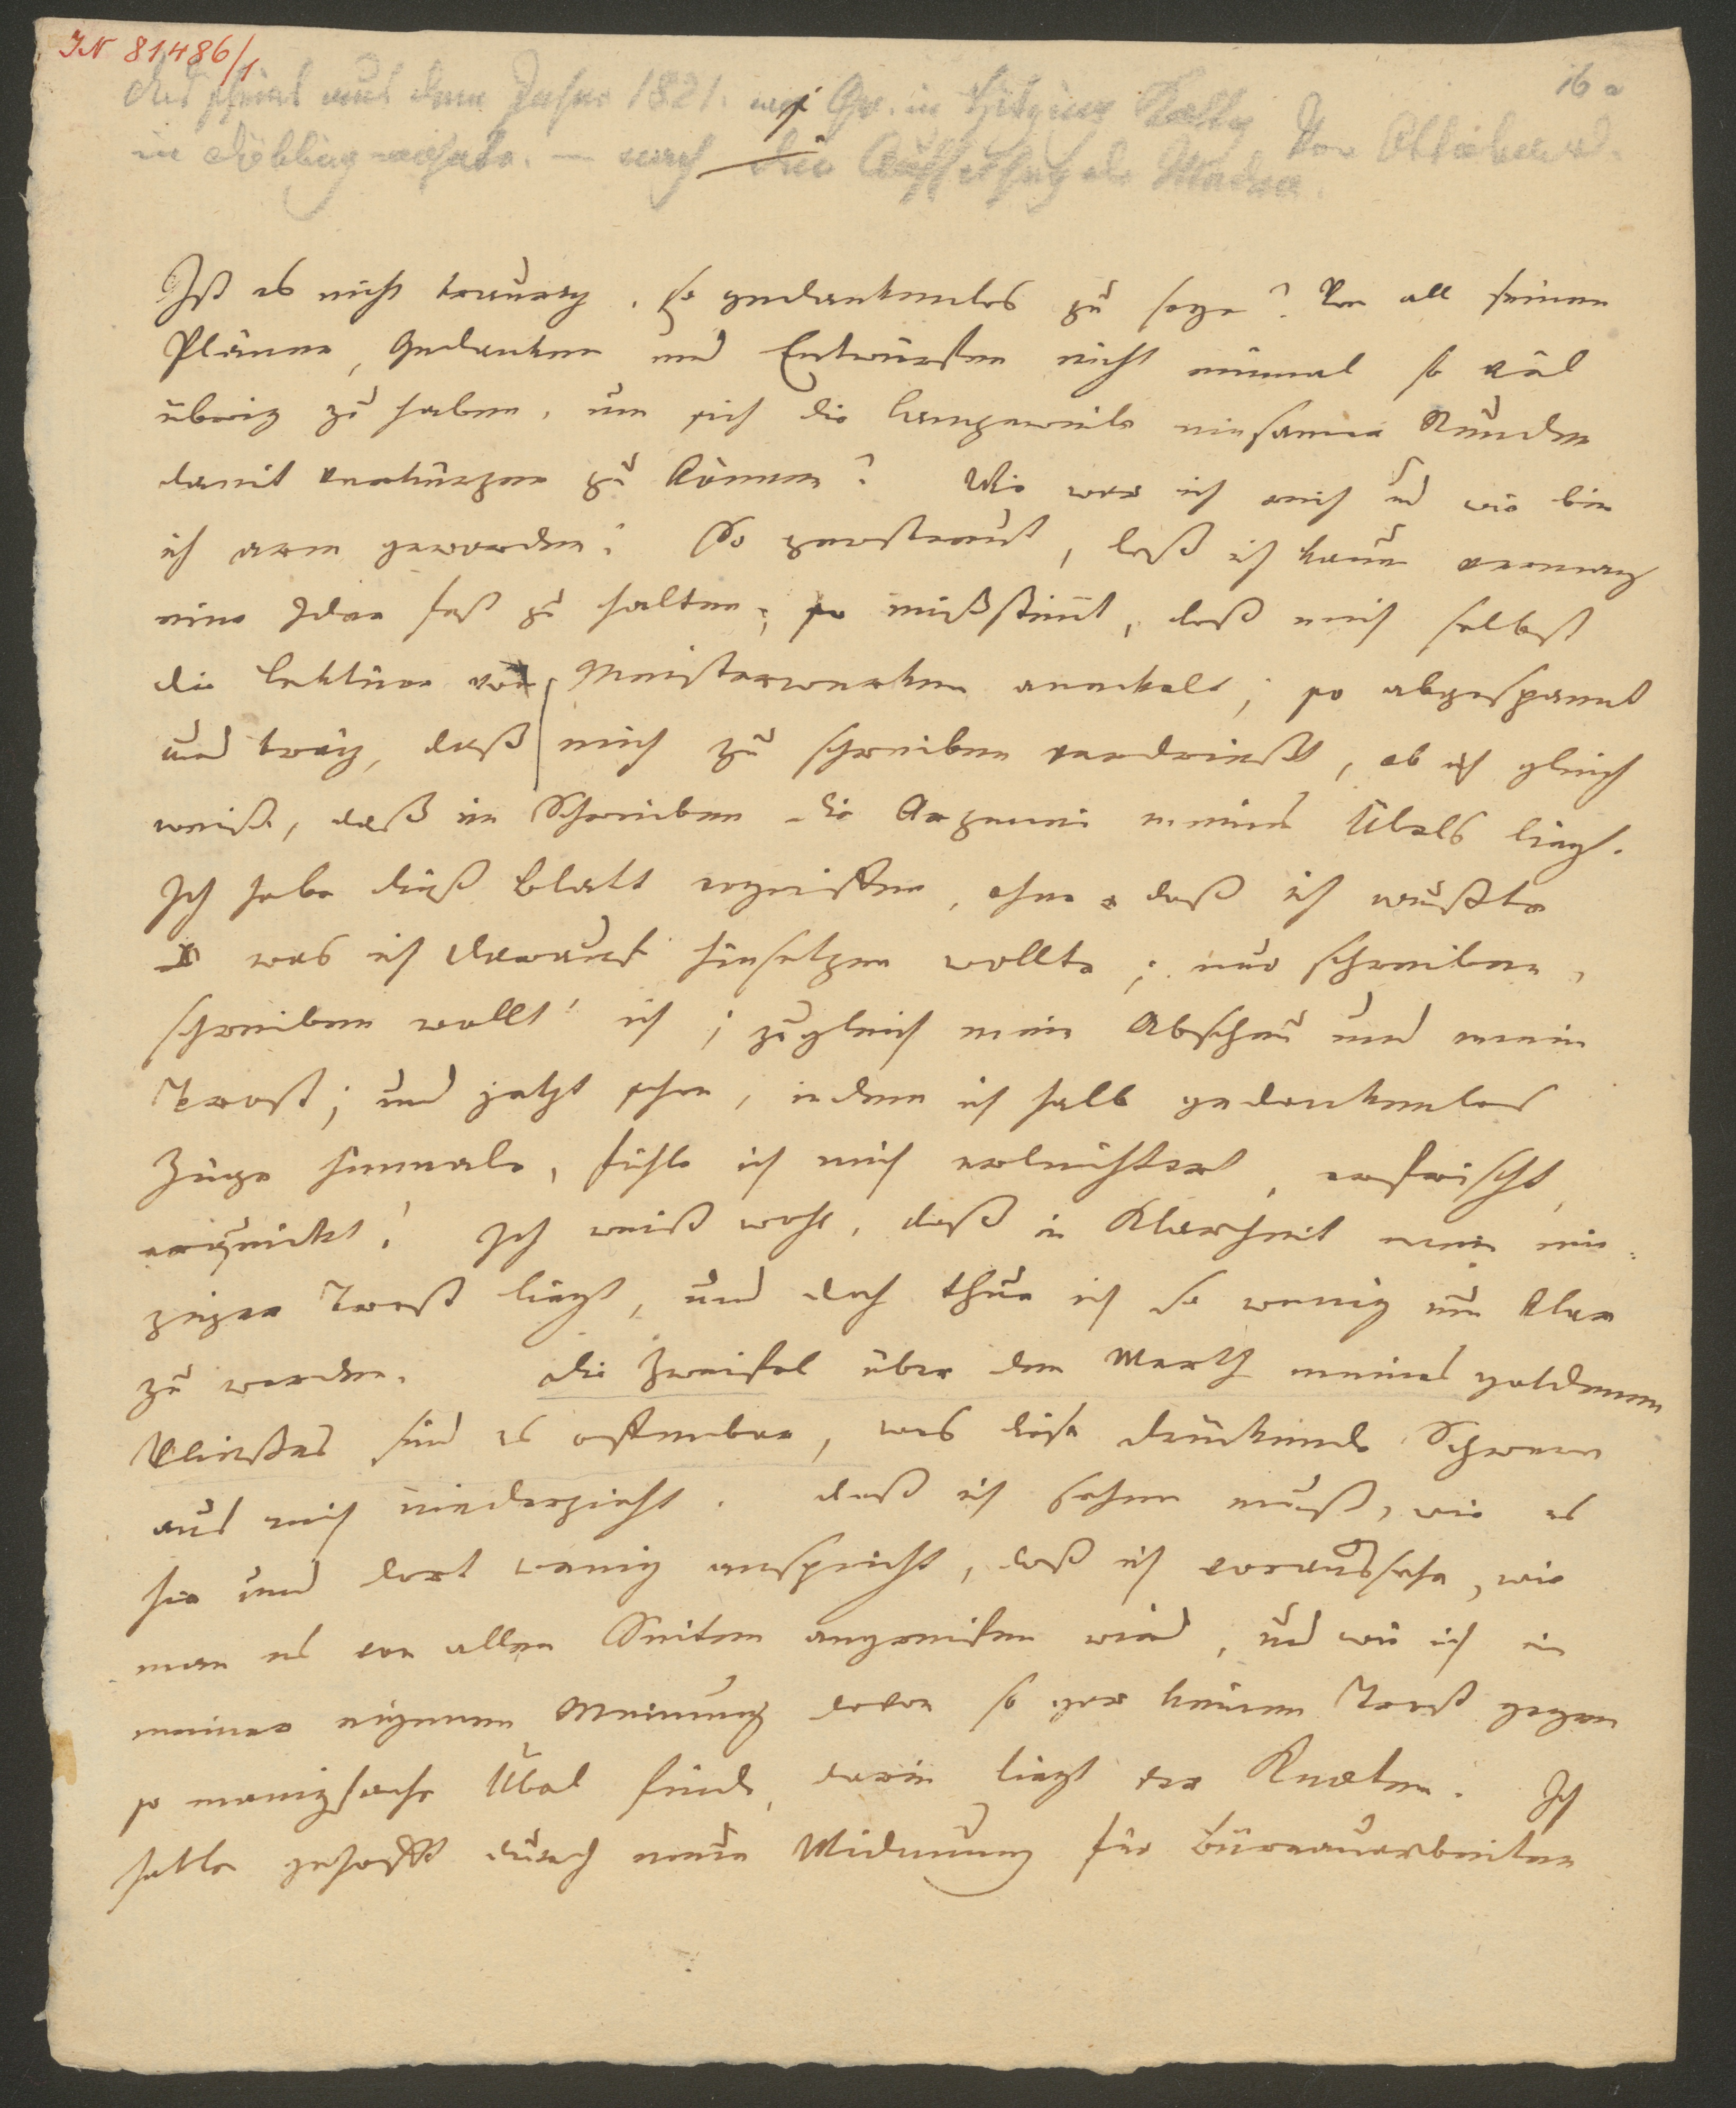 IN 81486/1
16 a
Das scheint aus dem Jahre 1821. wo Gr. in
in Döbling wohnte. — nach die Aufführung der Medea.
Ist es nicht traurig, so gedankenlos zu seyn? Von all seinen
Planen, Gedanken und Entwürfen nicht einmal so viel
übrig zu haben, um sich die Langeweile einsamer Stunden
damit verkürzen zu können? Wie war ich reich und wie bin
ich arm geworden! So zerstreut, daß ich kaum vermag
eine Idee fest zu halten; so mißstimt, daß mich selbst
die Lektüre von Meisterwerken aneckelt; so abgespannt
und träg, daß mich zu schreiben verdrießt, ob ich gleich
weiß, daß im Schreiben die Arzenei meines Übels liegt.
Ich habe dieß Blatt ergriffen, ohne daß ich wußte
was ich darauf hinsetzen wollte; nur schreiben,
schreiben wollt' ich; zugleich mein Abscheu und mein
Trost; und jetzt schon, indem ich halb gedankenlos
Züge hinmale, fühle ich mich erleichtert, erfrischt,
erquickt! Ich weiß wohl, daß in Klarheit mein ein-
ziger Trost liegt, und doch thue ich so wenig um klar
zu werden. Die Zweifel über den Werth meines goldenen
Vließes sind es offenbar, was diese drückende Schwere
auf mich niederzieht. Daß ich sehen muß, wie es
hie und dort wenig anspricht, daß ich voraussehe, wie
man es von allen Seiten angreifen wird, und wie ich in
meiner eigenen Meinung davon so gar keinen Trost gegen
so manigfache Übel finde, darin liegt der Knoten. Ich
hatte gehofft durch meine Widmung für Büreauarbeiten